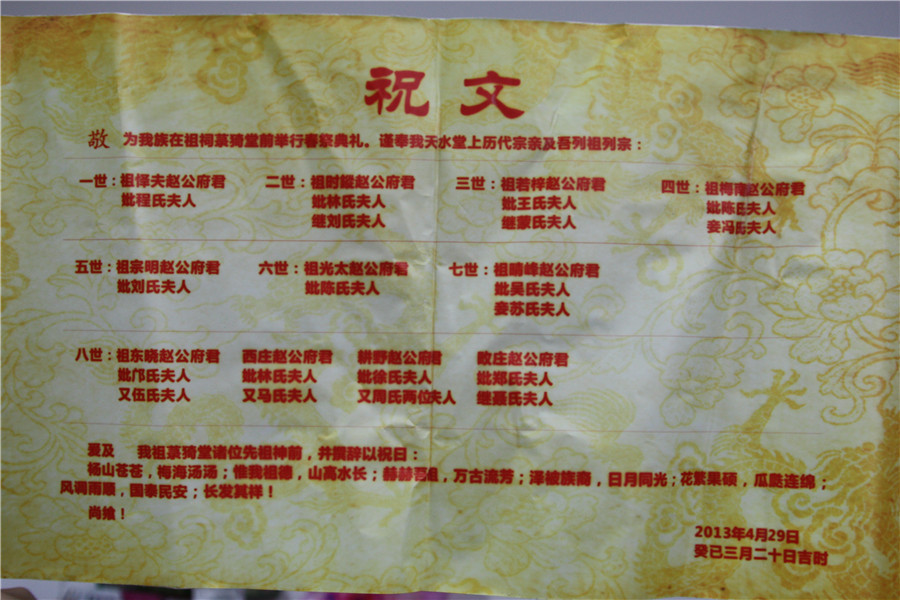 祝文
敬 为我族在祖祠菉猗堂前举行春祭典礼。谨奉我天水堂上历代宗亲及吾列祖列宗：
一世：祖怿夫赵公府君 二世：祖时鏦赵公府君 三世：祖若梓赵公府君 四世：祖梅南赵公府君
妣程氏夫人 妣林氏夫人 妣王氏夫人 妣陈氏夫人
继刘氏夫人 继蒙氏夫人 妾冯氏夫人
五世：祖宗明赵公府君 六世：祖光太赵公府君 七世：祖晴峰赵公府君
妣刘氏夫人 妣陈氏夫人 妣吴氏夫人
妾苏氏夫人
八世：祖东晓赵公府君 西庄赵公府君 耕野赵公府君 敬庄赵公府君
妣邝氏夫人 妣林氏夫人 妣徐氏夫人 妣郑氏夫人
又伍氏夫人 又马氏夫人 又周氏两位夫人 继聂氏夫人
爰及 我祖菉猗堂诸位先祖神前，并撰辞以祝曰：
杨山苍苍，梅海汤汤；惟我祖德，山高水长；赫赫吾祖，万古流芳；泽被族裔，日月同光；花繁果硕，瓜瓞连绵；
风调雨顺，国泰民安；长发其祥！
尚飨！
2013年4月29日
癸巳三月二十日吉时